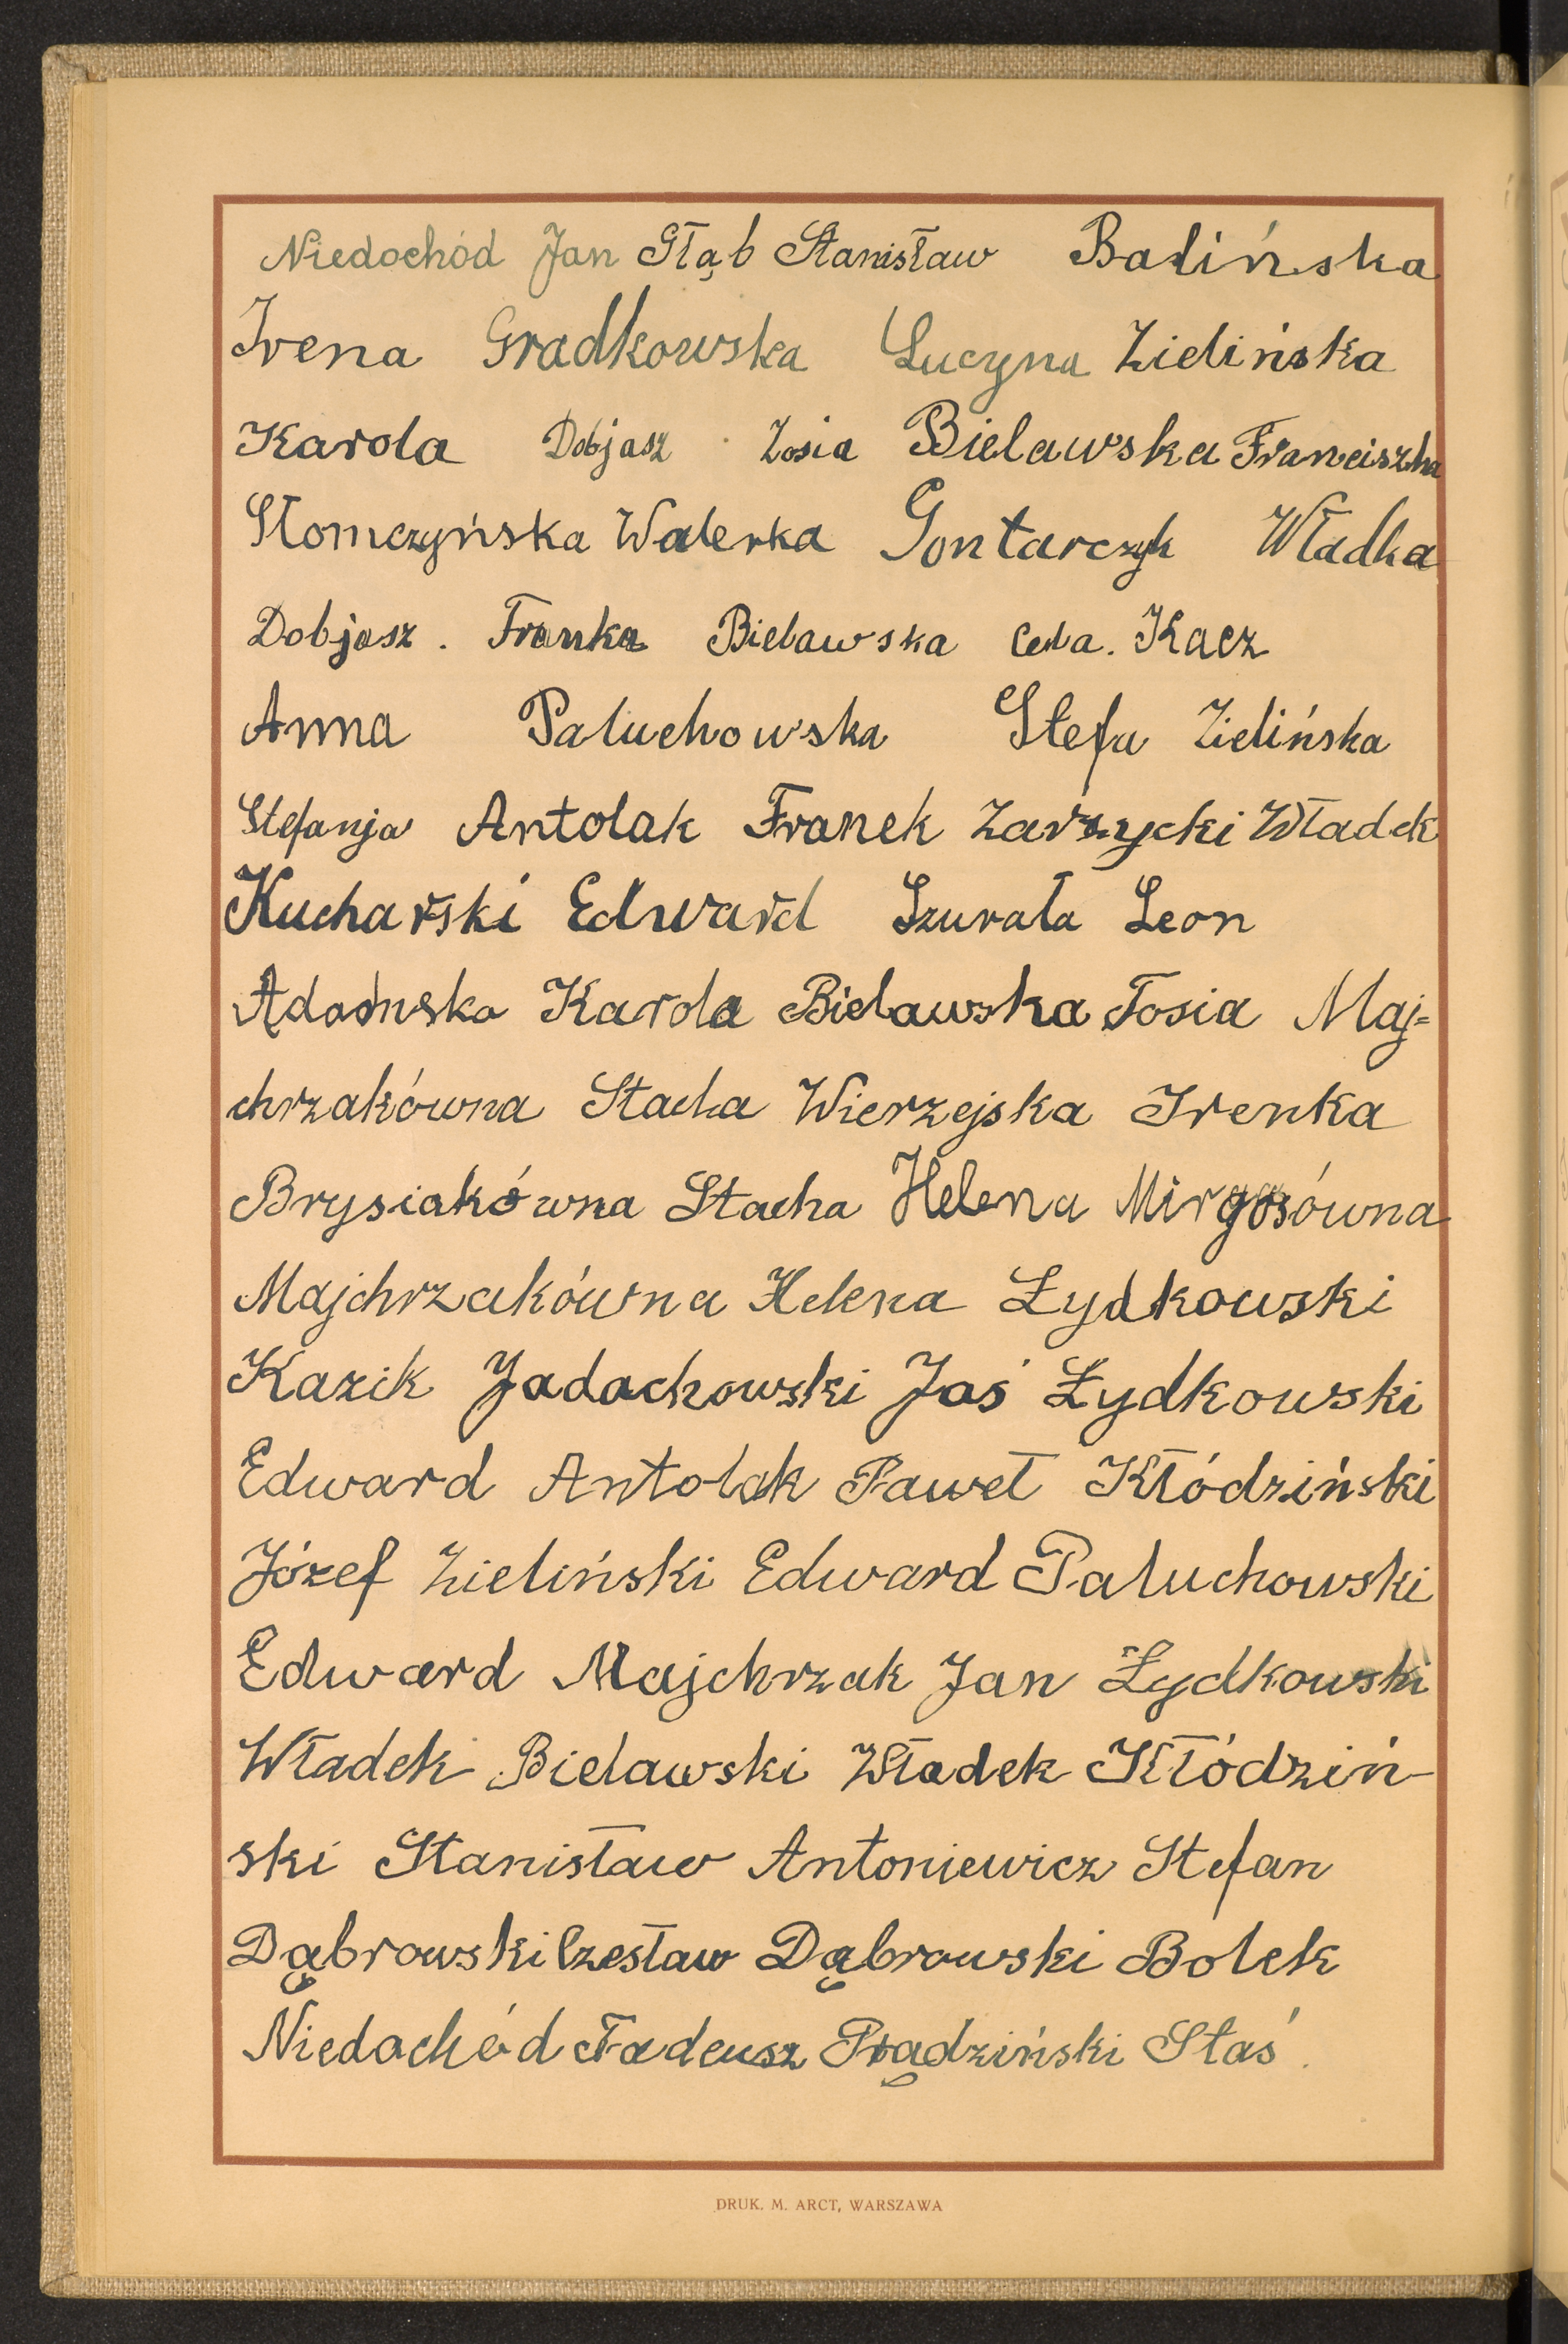 Niedochód Jan Głąb Stanisław Balińska
Irena Gradkowska Lucyna Zielińska
Karola Dobjasz Zosia Bielawska Franciszka
Słomczyńska Walerka Gontarczyk Władka
Dobjasz. Franka Bielawska Cesia. Kacz
Anna Paluchowska Stefa Zielińska
Stefanja Antolak Franek Zarzycki Władek
Kucharski Edward Szurała Leon
Adamska Karola Bielawska Tosia Maj=
chrzakówna Stacha Wierzejska Irenka
Brysiakówna Stacha Helena Mirgosówna
Majchrzakówna Helena Łydkowski
Kazik Jadachowski Jaś Łydkowski
Edward Antolak Paweł Kłódziński
Józef Zieliński Edward Paluchowski
Edward Majchrzak Jan Łydkowski
Władek Bielawski Władek Kłódziń-
ski Stanisław Antoniewicz Stefan
Dąbrowski Czesław Dąbrowski Bolek
Niedochód Tadeusz Prądziński Staś.
DRUK. M. ARCT, WARSZAWA